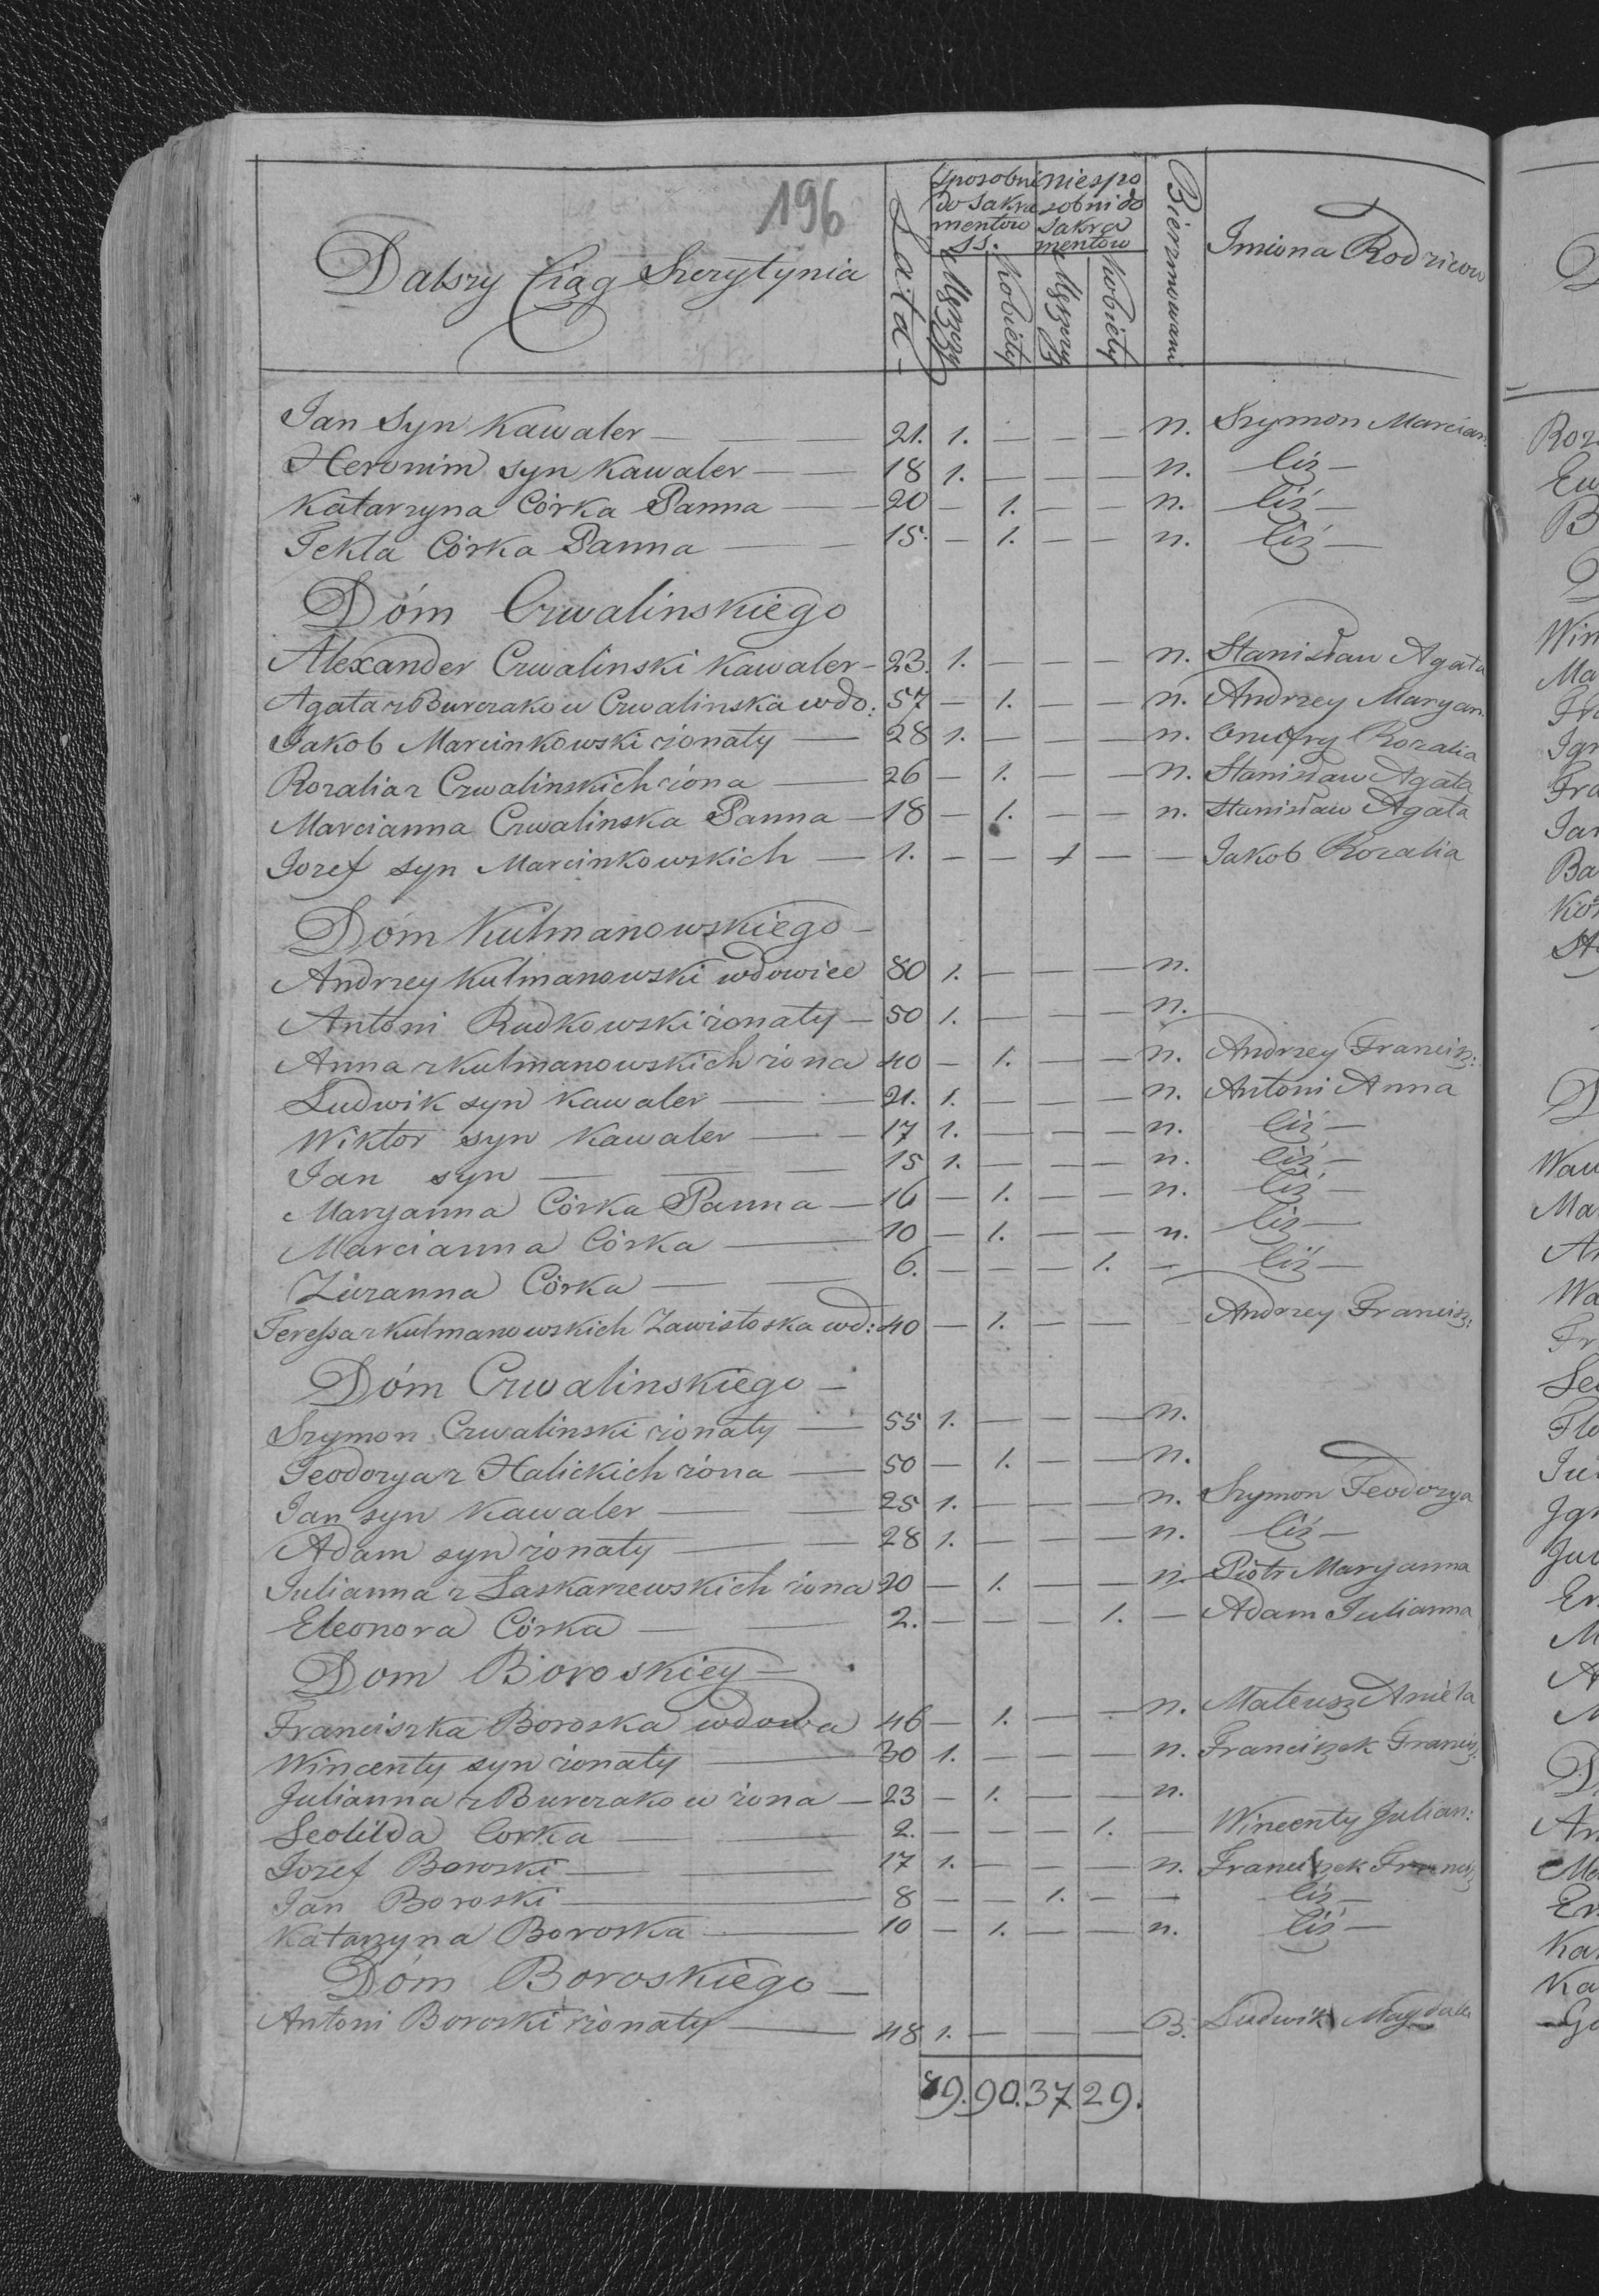 196
Dalszy Ciąg Szerytynia
Lata
Sposobni do Sakramentow SS.
niesposobni do Sakramentow
Męszczy
Kobiéty
Męszczy
Kobiéty
Bierzmowani
Imiona Rodzicow
Jan Syn Kawaler — 21. 1. — — — n. Szymon Marcian:
Heronim syn Kawaler — 18 1. — — — n. ciż —
Katarzyna Córka Panna — 20 — 1. — — n. ciż —
Tekla Córka Panna — 15. — 1. — — n. ciż —
Dóm Czwalinskiego
Alexander Czwalinski Kawaler — 23. 1. — — — n. Stanisław Agata
Agata z Burczakow Czwalinska wdo: 57 — 1. — — n. Andrzey Maryan:
Jakob Marcinkowski żonaty — 28 1. — — — n. Onufry Rozalia
Rozalia z Czwalinskich żona — 26 — 1. — — n. Stanisław Agata
Marcianna Czwalinska Panna — 18 — 1. — — n. Stanisław Agata
Jozef syn Marcinkowskich — 1. — — 1 — — Jakob Rozalia
Dóm Kulmanowskiego —
Andrzey Kulmanowski wdowiec 80 1. — — — n.
Antoni Rudkowski żonaty — 50 1. — — — n.
Anna z Kulmanowskich żona 40 — 1. — — n. Andrzey Francisz:
Ludwik syn Kawaler — 21. 1. — — — n. Antoni Anna
Wiktor syn Kawaler — 17 1. — — — n. ciż —
Jan syn — 15 1. — — — n. ciż —
Maryanna Córka Panna — 16 — 1. — — n. ciż —
Marcianna Córka — 10 — 1. — — n. ciż —
Zuzanna Córka — 6. — — — 1. — ciż —
Teressa z Kulmanowskich Zawistoska wd: 40 — 1. — — Andrzey Francisz:
Dóm Czwalinskiego —
Szymon Czwalinski żonaty — 55 1. — — — n.
Teodozya z Halickich żona — 50 — 1. — — n.
Jan syn Kawaler — 25 1. — — — n. Szymon Teodozya
Adam syn żonaty — 28 1. — — — n. ciż —
Julianna z Laskarzewskich żona 20 — 1. — — n. Piotr Maryanna
Eleonora Córka — 2. — — — 1. — Adam Julianna
Dom Boroskiey —
Franciszka Boroska wdowa 46 — 1. — — n. Mateusz Aniela
Wincenty syn żonaty — 30 1. — — — n. Franciszek Francisz:
Julianna z Burczakow żona — 23 — 1. — — n.
Leolilda Corka — 2. — — — 1. — Wincenty Julian:
Jozef Boroski — 17 1. — — — n. Franciszek Francisz
Jan Boroski — 8 — — 1. — — ciż —
Katarzyna Boroska — 10 — 1. — — n. ciż —
Dóm Boroskiego —
Antoni Boroski żonaty — 48 1. — — — B. Ludwik Magdale
89. 90. 37. 29.